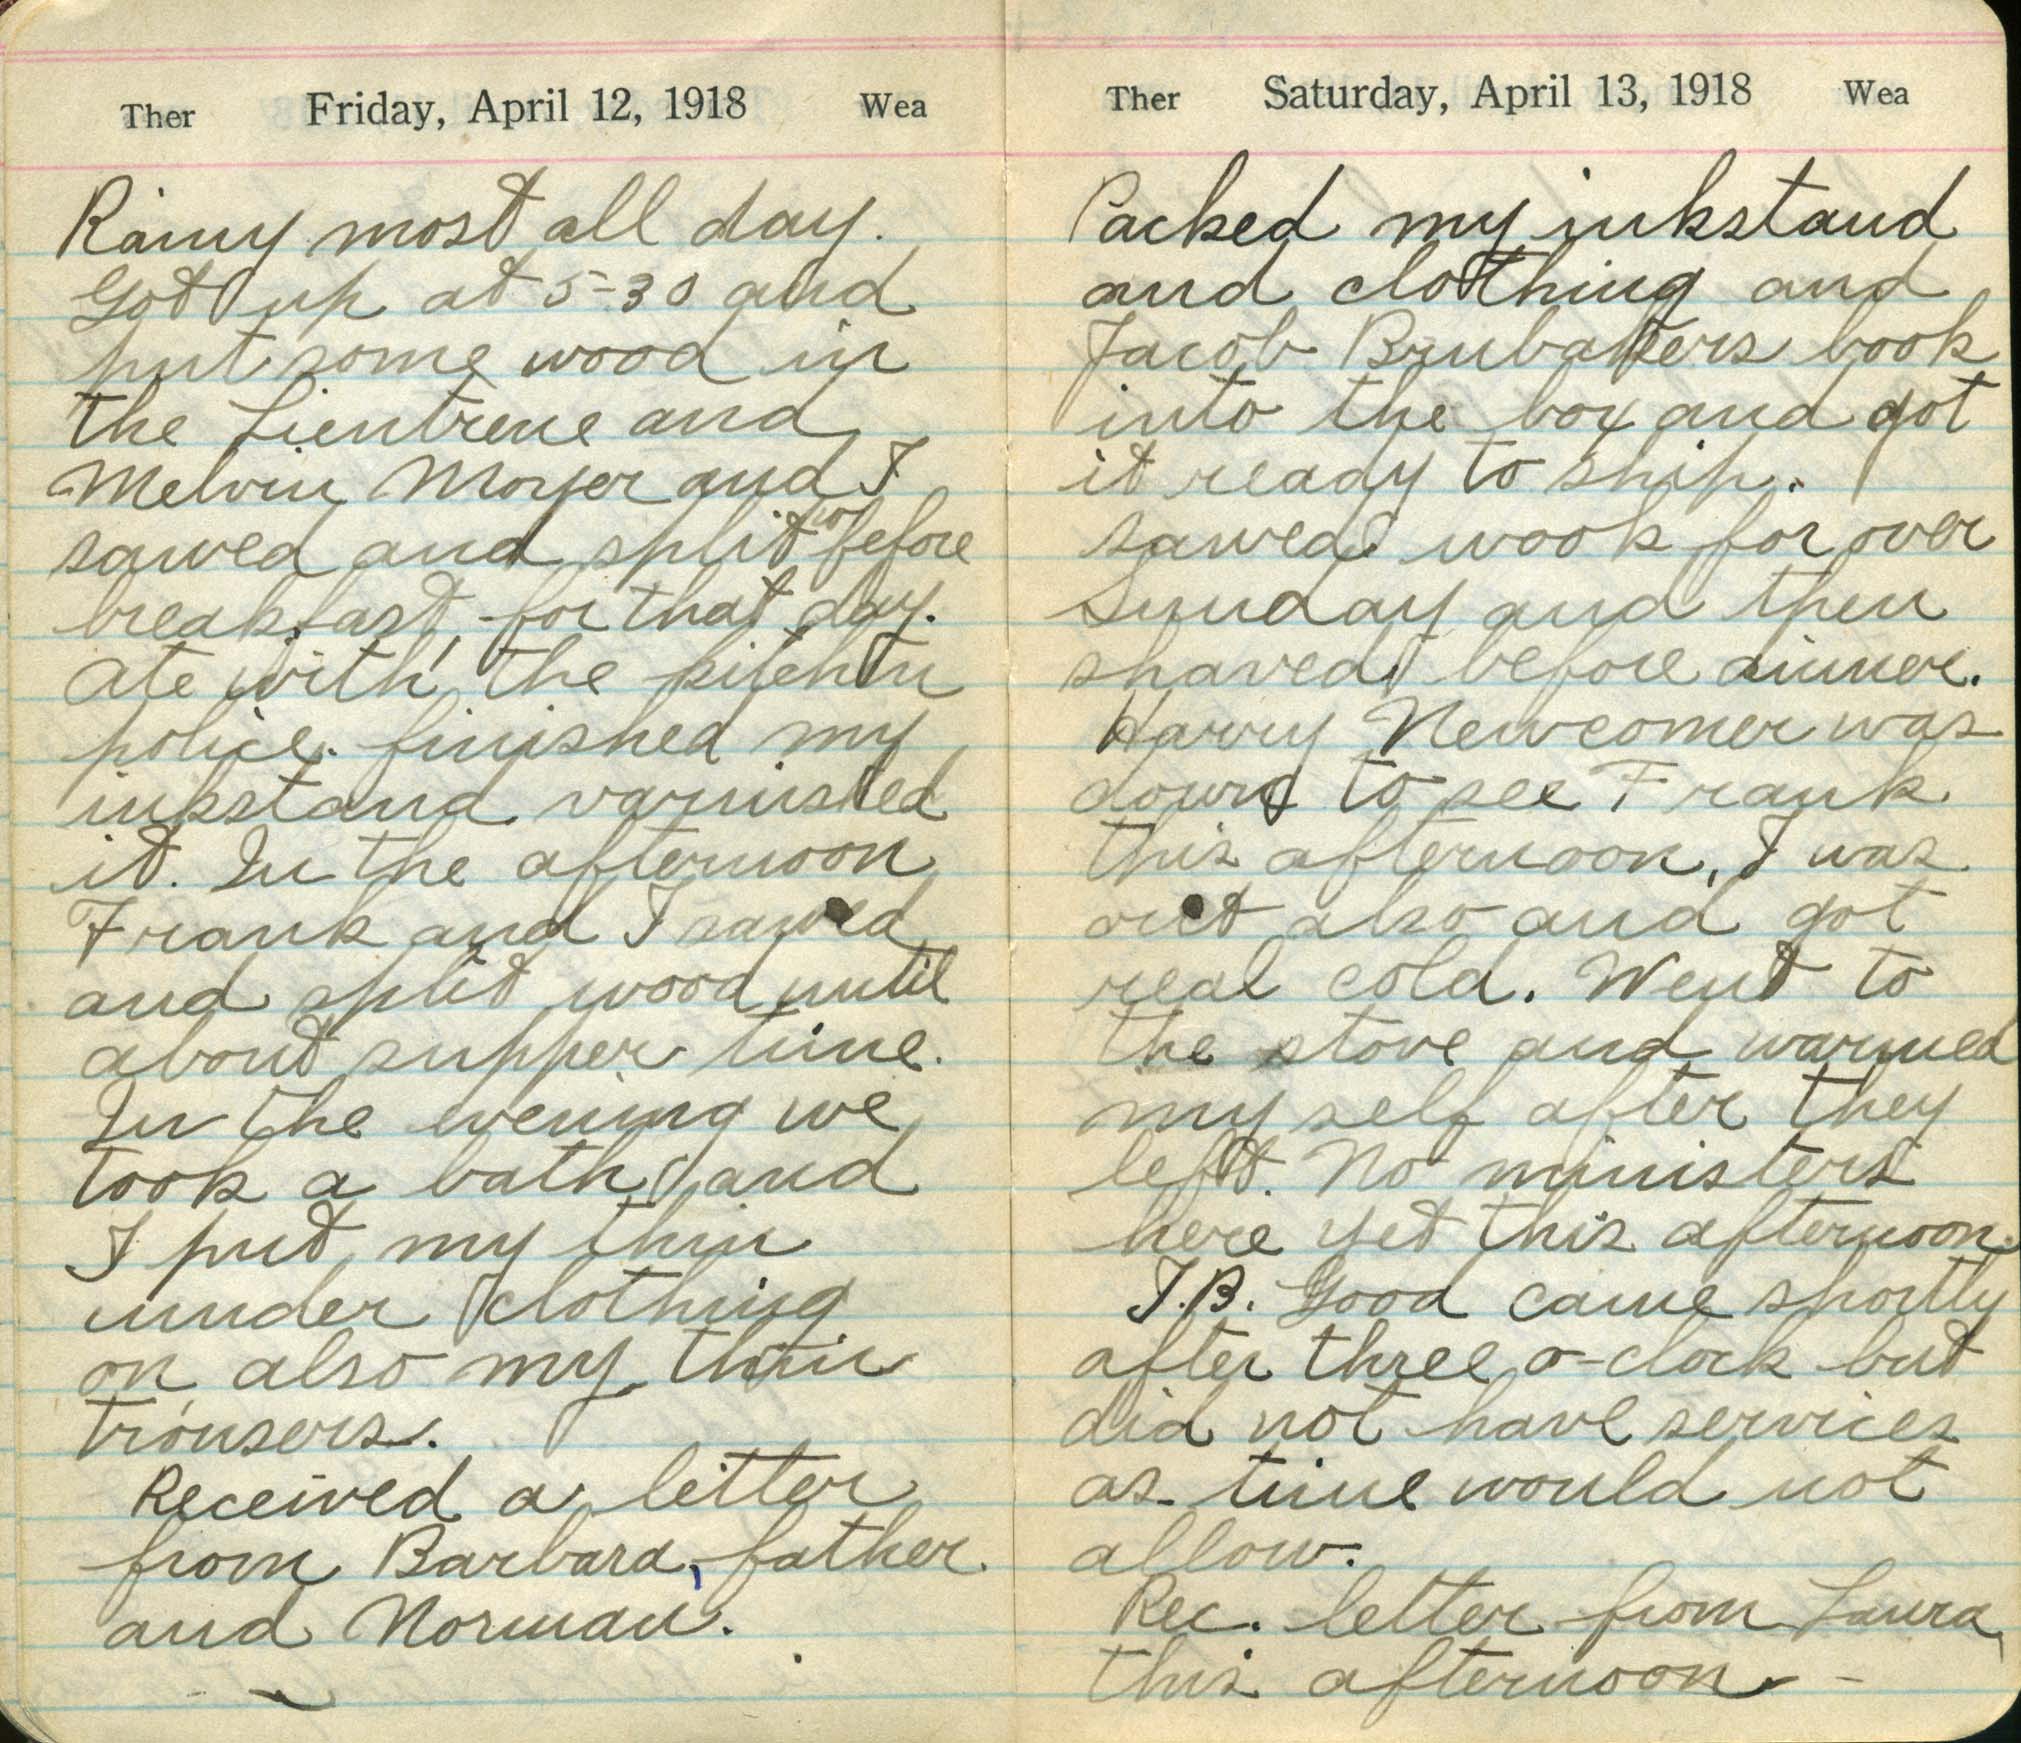 Ther Friday, April 12, 1918 Wea
Rainy most all day.
Got up at 5-30 and
put some wood in
the Lientrene and
Melvin Moyer and I
sawed and split before
breakfast, for that day.
Ate with the kitchen
police. finished my
inkstand varnished
it. In the afternoon
Frank and I sawed
and split wood until
about supper time.
In the evening we
took a bath and
I put my thin
under clothing
on also my thin
trousers.
Received a letter
from Barbara, father
and Norman.
Ther Saturday, April 13, 1918 Wea
Packed my inkstand
and clothing and
Jacob Brubakers book
into the box and got
it ready to ship.
sawed wook for over
Sunday and then
shaved before dinner.
Harry Newcomer was
down to see Frank
this afternoon, I was
out also and got
real cold. Went to
the stove and warmed
my self after they
left. No ministers
here yet this afternoon.
I.B. Good came shortly
after three o-clock but
did not have services
as time would not
allow.
Rec. letter from Laura
this afternoon -